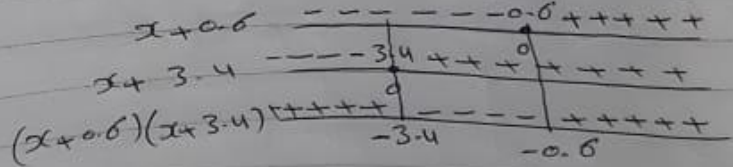 x+0.6 - - - - - - -0.6 + + + + +
0
x+3.4 - - - - -3.4 + + + + + + + +
0
(x+0.6)(x+3.4) + + + + + - - - - + + + + +
-3.4 -0.6